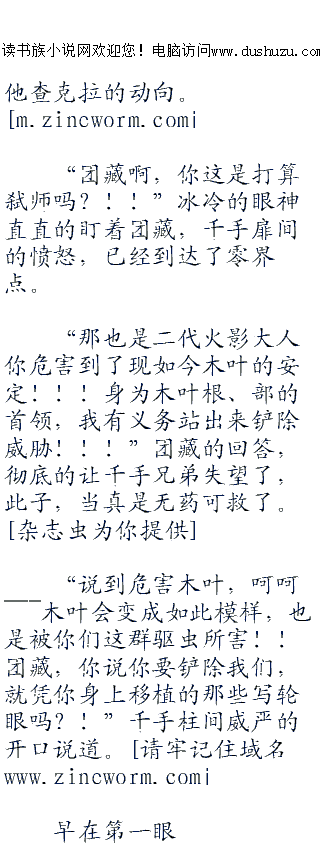 读书族小说网欢迎您！电脑访问www.dushuzu.com
他查克拉的动向。
[m.zincworm.com¡
“团藏啊，你这是打算
弑师吗？！！”冰冷的眼神
直直的盯着团藏，千手扉间
的愤怒，已经到达了零界
点。
“那也是二代火影大人
你危害到了现如今木叶的安
定！！！身为木叶根、部的
首领，我有义务站出来铲除
威胁！！！”团藏的回答，
彻底的让千手兄弟失望了，
此子，当真是无药可救了。
[杂志虫为你提供]
“说到危害木叶，呵呵
___木叶会变成如此模样，也
是被你们这群驱虫所害！！
团藏，你说你要铲除我们，
就凭你身上移植的那些写轮
眼吗？！”千手柱间威严的
开口说道。[请牢记住域名
www.zincworm.com¡
早在第一眼